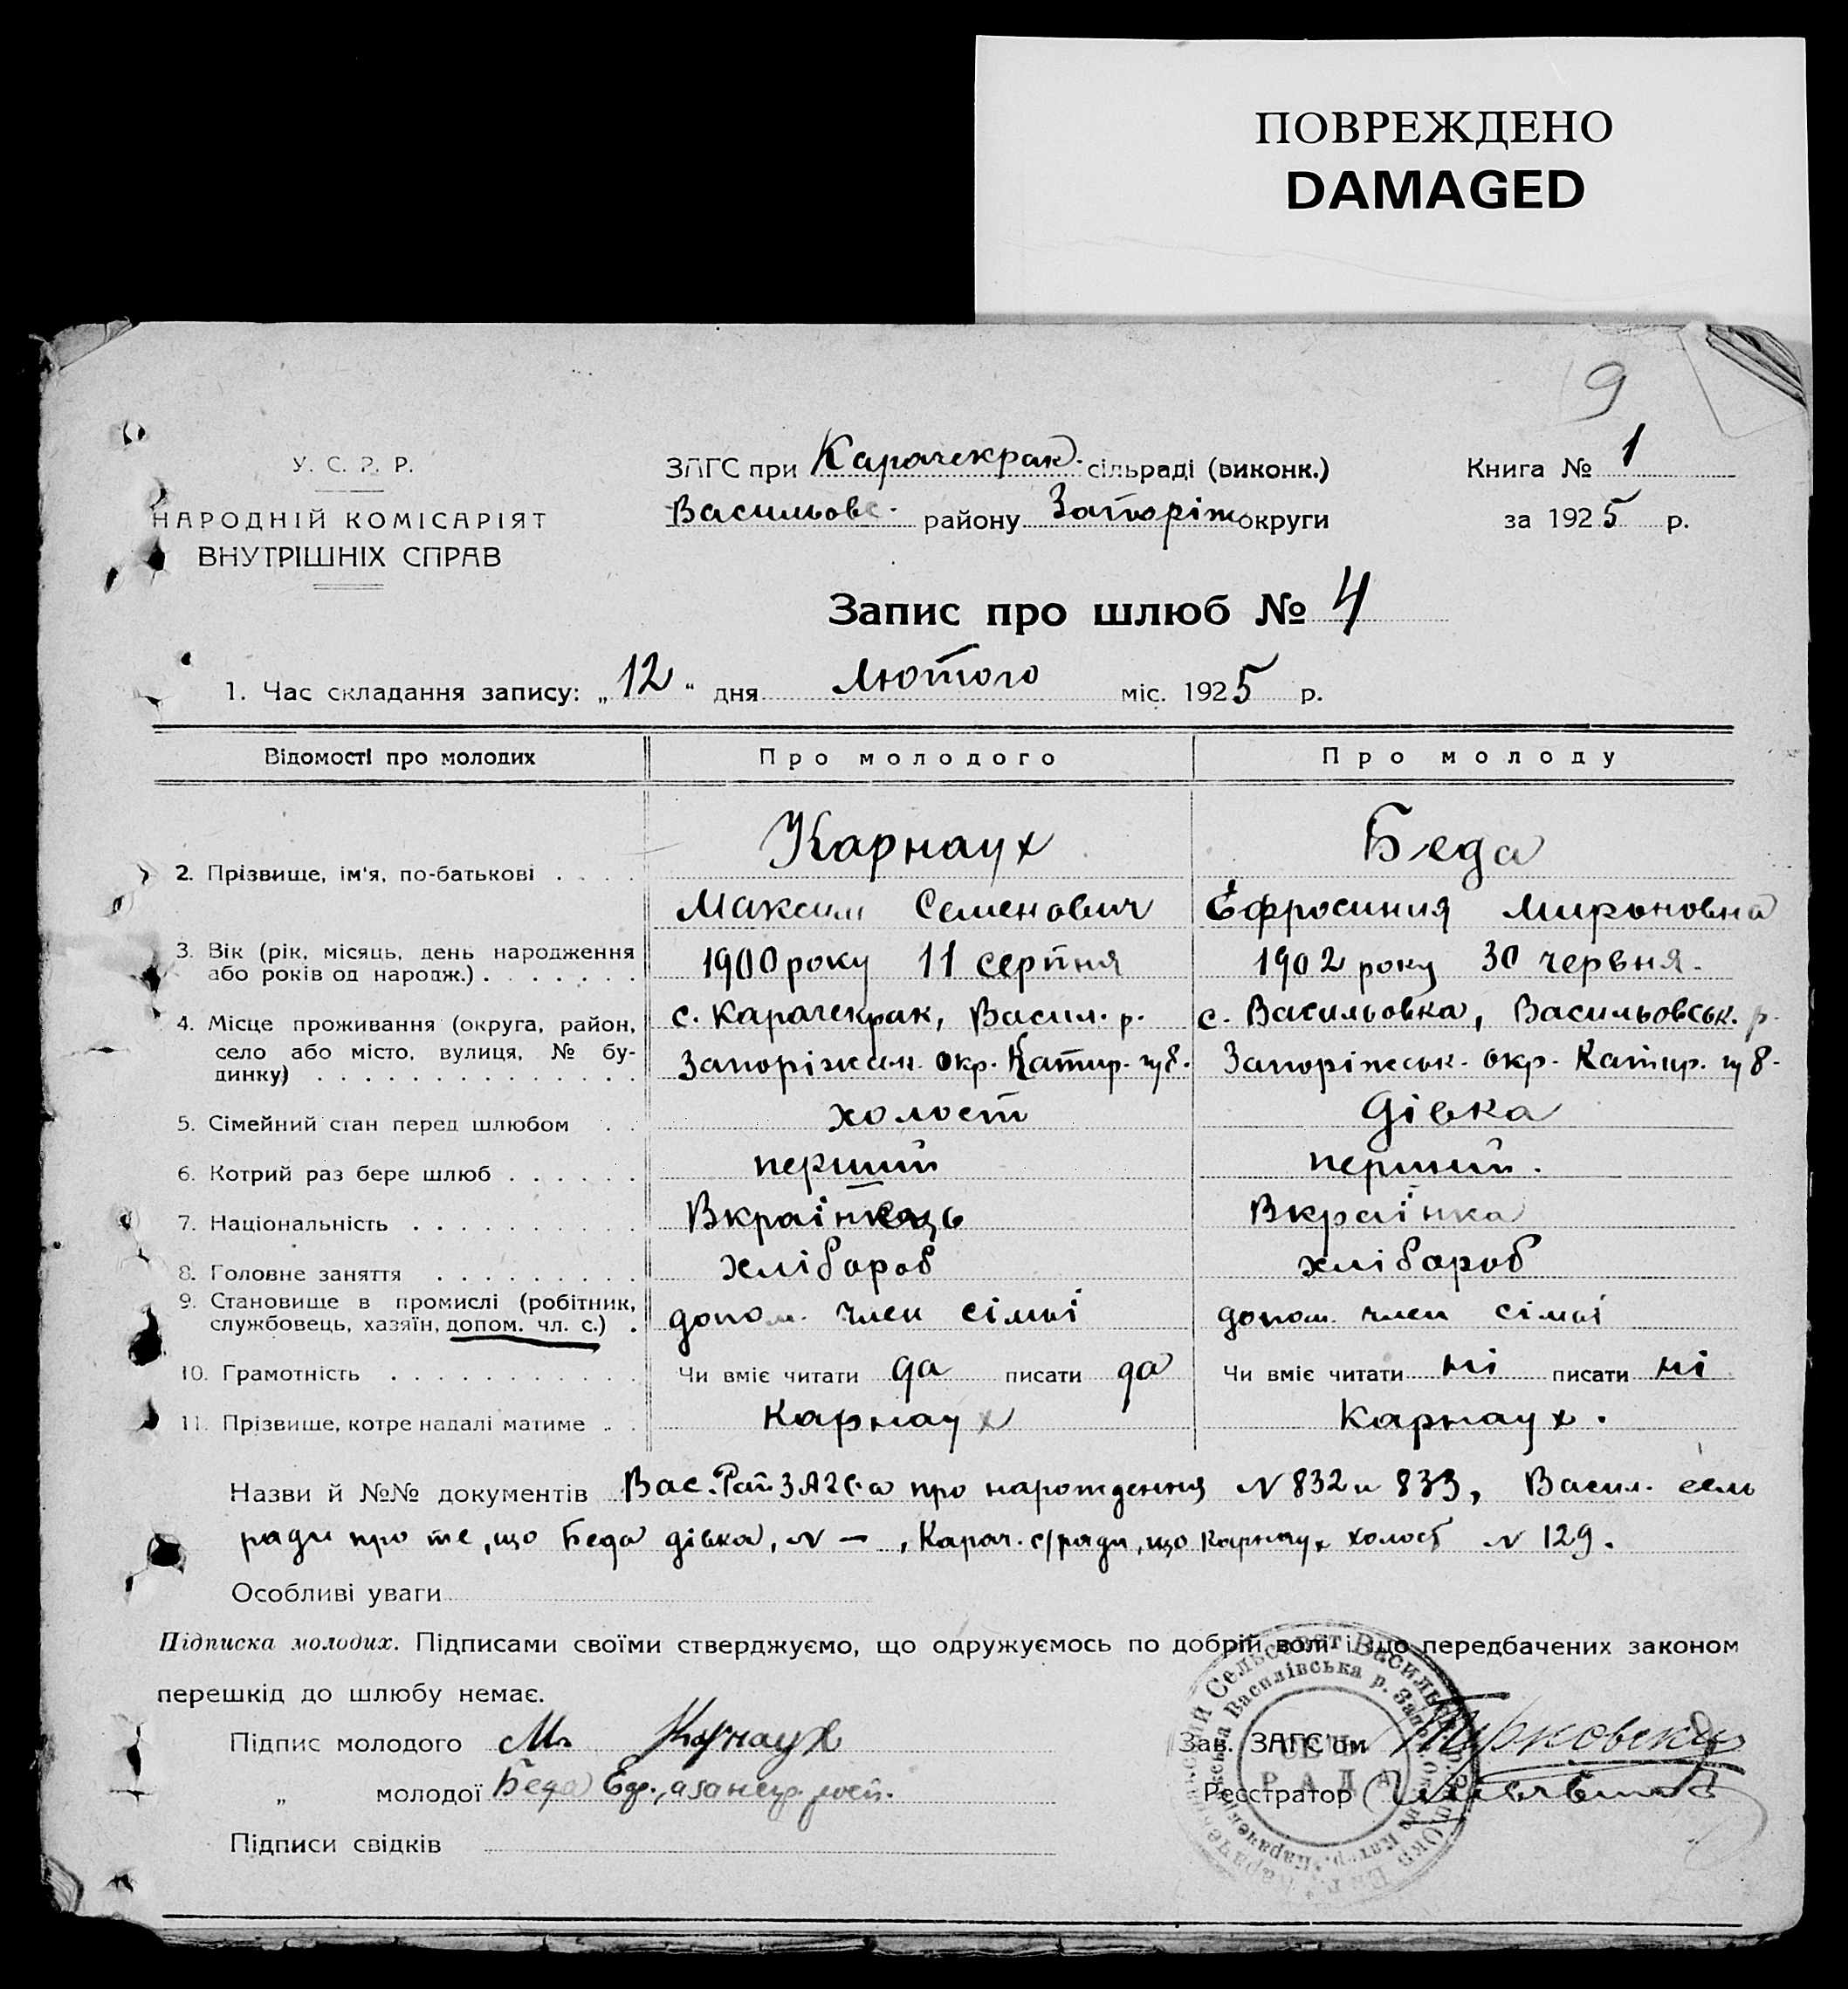 ПОВРЕЖДЕНО
DAMAGED
9
У. С. Р. Р.
НАРОДНІЙ КОМІСАРІЯТ
ВНУТРІШНІХ СПРАВ
ЗАГС при Карачекрак. сільраді (виконк.)
Васильовс. району Запоріж округи
Книга № 1
за 1925 р.
Запис про шлюб № 4
1. Час складання запису: „12“ дня Лютого міс. 1925 р.
Відомості про молодих Про молодого Про молоду
Карнаух Беда
2. Прізвище, ім'я, по-батькові . . . .
Максим Семенович Ефросиния Мироновна
3. Вік (рік, місяць, день народження
або років од народж.) . . . . . . .
1900 року 11 серпня 1902 року 30 червня.
4. Місце проживання (округа, район,
село або місто, вулиця, № бу-
динку) . . . . . . . . . . . . . .
с. Карачекрак, Васил. р. с. Васильовка, Васильовськ. р.
Запоріжськ. окр. Катир. губ. Запоріжськ. окр. Катир. губ.
5. Сімейний стан перед шлюбом . . холост дівка
6. Котрий раз бере шлюб . . . . . . перший перший.
7. Національність . . . . . . . . . . Вкраінець Вкраінка
8. Головне заняття . . . . . . . . . хлібороб хлібороб
9. Становище в промислі (робітник,
службовець, хазяїн, допом. чл. с.) .
допом. член сімьі допом. член сімьі
10. Грамотність . . . . . . . . . . . Чи вміє читати да писати да Чи вміє читати ні писати ні
11. Прізвище, котре надалі матиме . . Карнаух Карнаух.
Назви й №№ документів Вас. Рай ЗАГС-а про народження N 832 и 833, Васил. сель
ради про те, що Беда дівка, N — , Карач. с/ради, що Карнаух холост N 129.
Особливі уваги
Підписка молодих. Підписами своїми стверджуємо, що одружуємось по добрій волі і що передбачених законом
перешкід до шлюбу немає.
Підпис молодого М. Карнаух
Зав. ЗАГС'ом
„ молодої Беда Еф., а за непр.
Реєстратор
Підписи свідків
РАДА